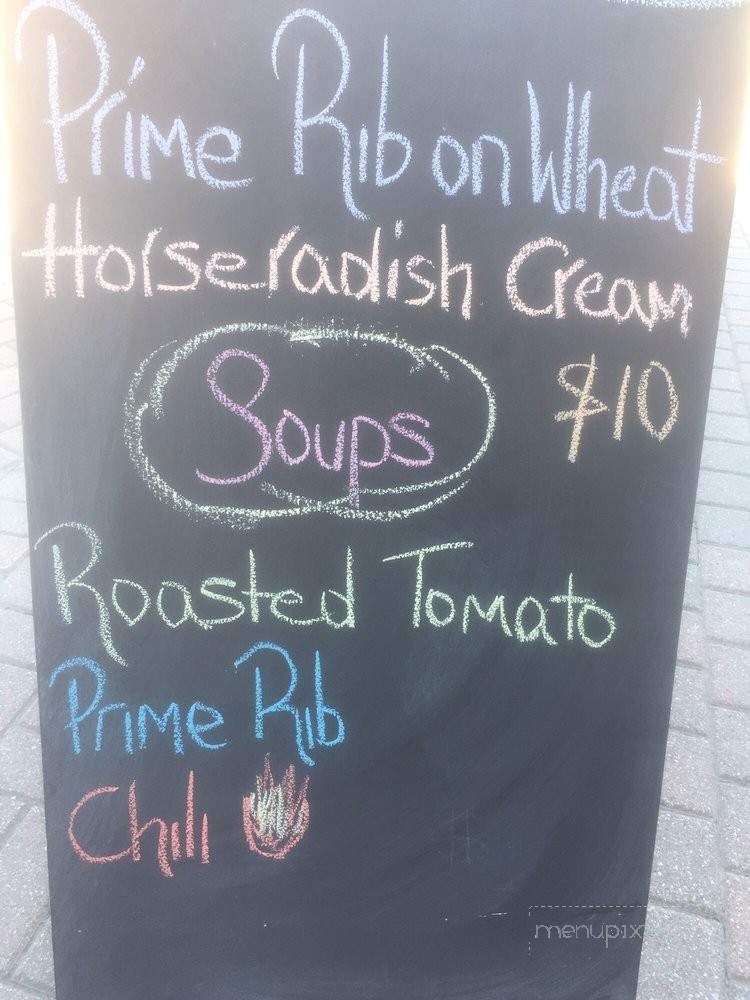 Prime Rib on Wheat
Horseradish Cream
$10
Soups
Roasted Tomato
Prime Rib
Chili
menupix